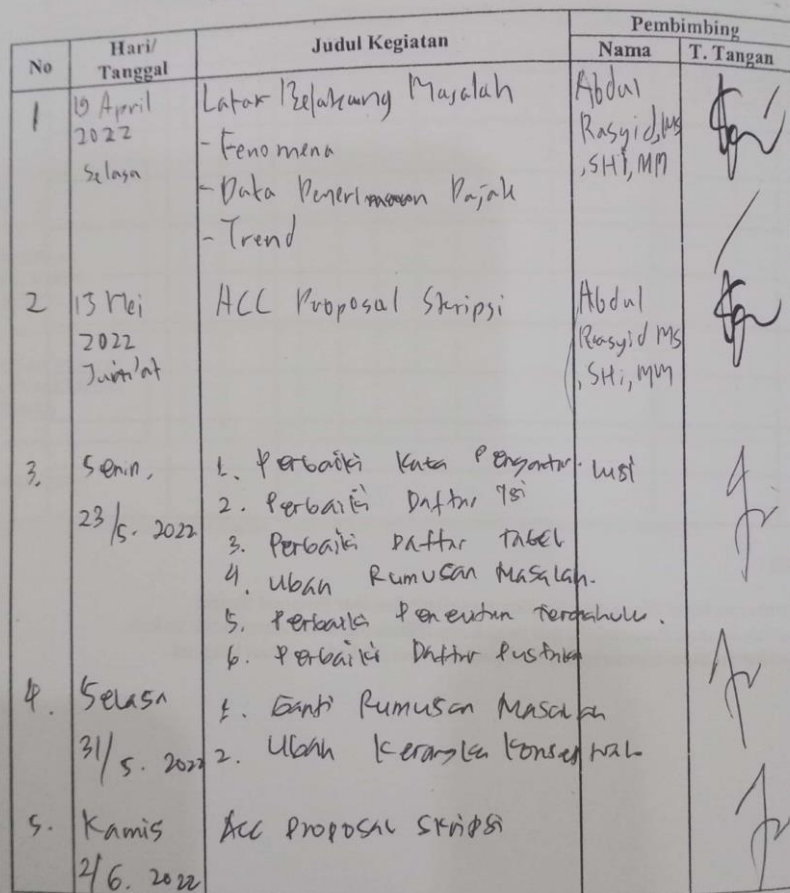 No
Hari/
Tanggal
Judul Kegiatan
Pembimbing
Nama
T. Tangan
1
19 April
2022
Selasa
Latar Belakang Masalah
- Fenomena
- Data Penerimaan Pajak
- Trend
Abdul
Rasyid, MS
, SHI, MM
2
13 Mei
2022
Jum'at
ACC Proposal Skripsi
Abdul
Rasyid MS
, SHi, MM
3.
Senin,
23/5. 2022
1. Perbaiki Kata Pengantar.
2. Perbaiki Daftar Isi
3. Perbaiki Daftar Tabel
4. Ubah Rumusan Masalah.
5. Perbaiki Penelitian Terdahulu.
6. Perbaiki Daftar Pustaka
Lusi
4.
Selasa
31/5. 2022
1. Ganti Rumusan Masalah
2. Ubah Kerangka Konseptual
5.
Kamis
2/6. 2022
Acc Proposal Skripsi